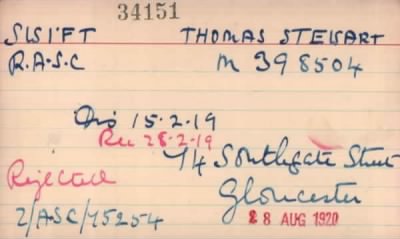 34151
SWIFT THOMAS STEWART
R.A.S.C M 398504
Dis 15.2.19
Rec 28.2.19
74 Southgate Street
Rejected Gloucester
2/ASC/75254 28 AUG 1920